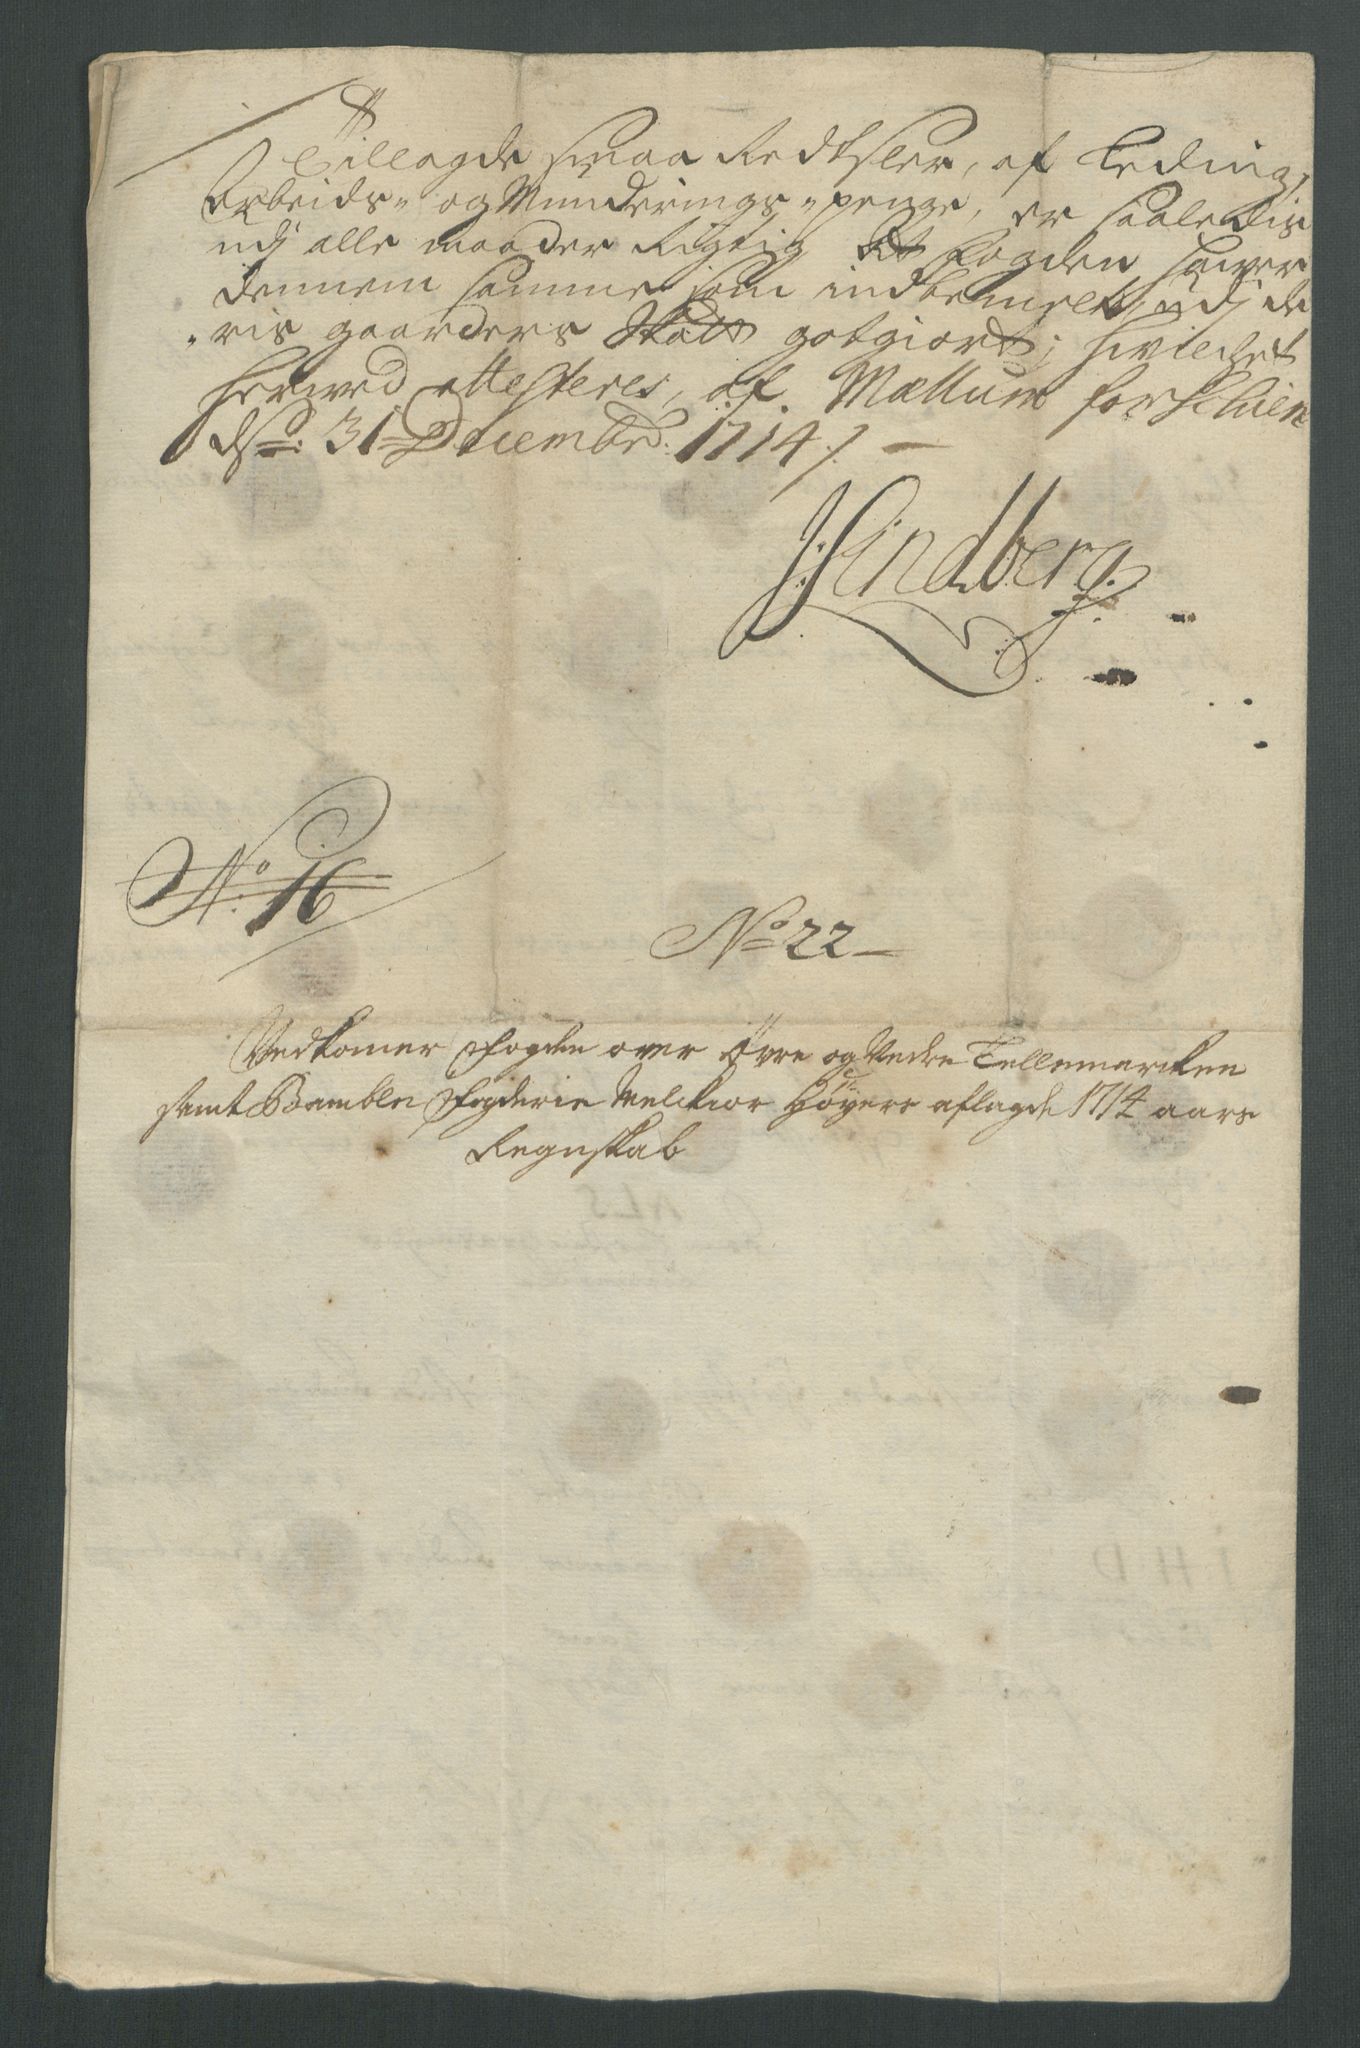 Tillagde smaa Redtsler, af Leding,
Arbeids- og Munderings-penge, er saaledis
udj alle maader Rigtig at Fogden hawer
dennem samme som indbemelt, udj de
-ris gaarders Skatt gotgiort; hvilchet
herved attesteres, af. Mællum for Schien
d. 31 Decembr: 1714 /. —
JLindberg
No: 16
No 22 —
Vedkomer Fogden over Øvre og Nedre Tellemarcken
samt Bamble Fogderie Melchior Høyers aflagde 1714 aars
Regnskab